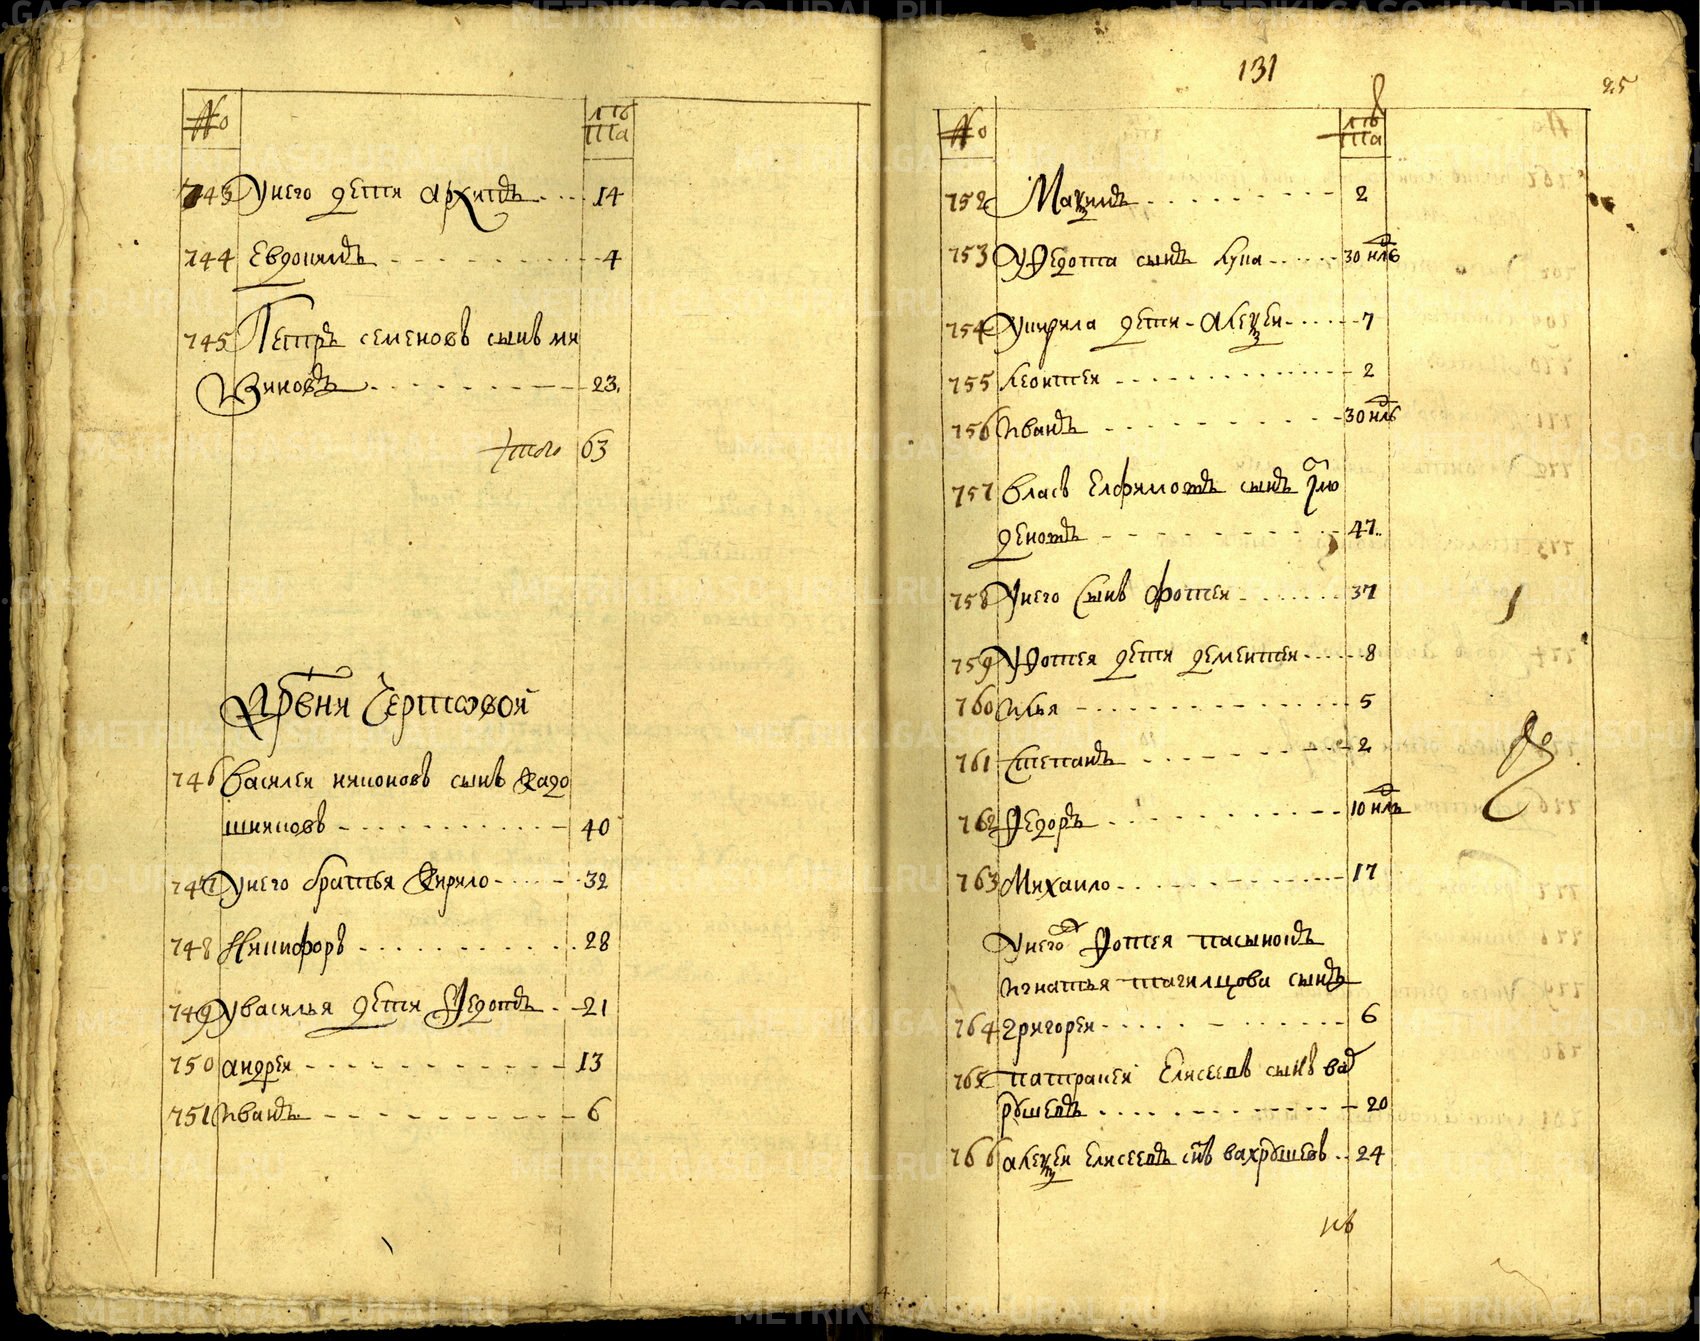 № лѣта
743 У него дети Архипъ 14
744 Евдокимъ 4
745 Петръ семеновъ сынъ ми
зиновъ 23
Итого 63
Дрвни Чертовой
746 Василей никоновъ сынъ кадо
шниковъ 40
747 У него братья Кирило 32
748 Никифоръ 28
749 У василья дети Федотъ 21
750 андрей 13
751 Иванъ 6
131
25
№ лѣта
752 Мазимъ 2
753 У Федота сынъ Лука 30 нлъ
754 У кирила дети Алеѯей 7
755 леонтей 2
756 Иванъ 30 нлъ
757 Власъ сынъ
47
758 У него Сынъ Фотей 37
759 У Фотея дети дементей 8
760 Илья 5
761 Степанъ 2
762 Федоръ 10 нлъ
763 Михаило 17
У него Фотея пасынокъ
Игнатья тагилцова сынъ
764 Григорей 6
765 патракей Елисеевъ сынъ вах
рушевъ 20
766 алеѯей Елисеевъ снъ вахрушевъ 24